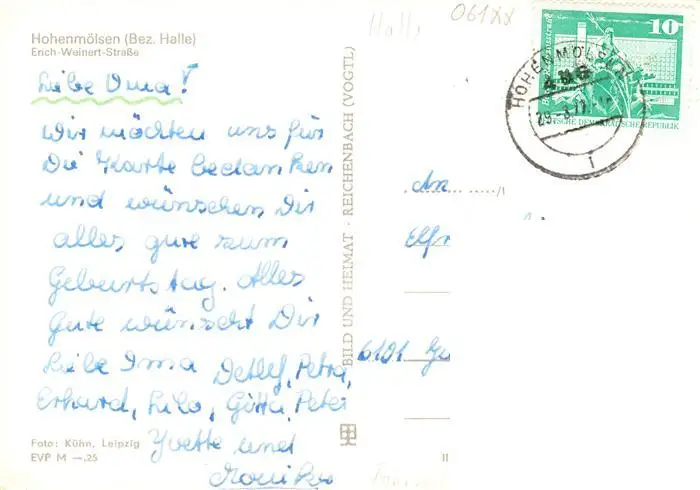 Hohenmölsen (Bez. Halle)
Erich-Weinert-Straße
Liebe Oma!
Wir möchten uns für
Die Karte bedanken
und wünschen Dir
alles gute zum
Geburtstag. Alles
Gute wünscht Dir
Liebe Ima Detlef, Petra,
Erhard, Lilo, Gitta, Peter
Yvette und
Monika
Foto: Kühn, Leipzig
EVP M —.25
BILD UND HEIMAT · REICHENBACH (VOGTL)
Halle
061xx
10
DEUTSCHE DEMOKRATISCHE REPUBLIK
HOHENMÖLSEN
1
An
Elfr
6101
II